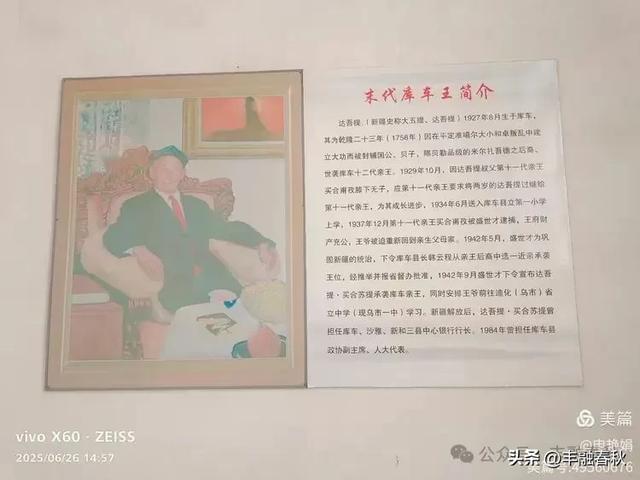 末代库车王简介
达吾提（新疆史称大五提、达吾提）1927年8月生于库车，
其为乾隆二十三年（1758年）因在平定准噶尔大小和卓叛乱中战
立大功而被封辅国公、贝子，赐贝勒品级的米尔扎吾德之后裔、
世袭库车十二代亲王。1929年10月，因达吾提叔父第十一代亲王
买合甫孜膝下无子，应第十一代亲王要求将两岁的达吾提过继给
第十一代亲王，为其成长进步，1934年6月送入库车县立第一小学
上学。1937年12月第十一代亲王买合甫孜被盛世才逮捕，王府财
产充公，王爷被迫重新回到亲生父母家。1942年5月，盛世才为巩
固新疆的统治，下令库车县长韩云程从亲王后裔中选一近亲承袭
王位，经推举并报省督办批准，1942年9月盛世才下令宣布达吾
提·买合苏提承袭库车亲王，同时安排王爷前往迪化（乌市）省
立中学（现乌市一中）学习。新疆解放后，达吾提·买合苏提曾
担任库车、沙雅、新和三县中心银行行长。1984年曾担任库车县
政协副主席、人大代表。
vivo X60 · ZEISS
2025/06/26 14:57
美篇
@申艳娟
公众号
头条 @丰融春秋
美篇号:49560676